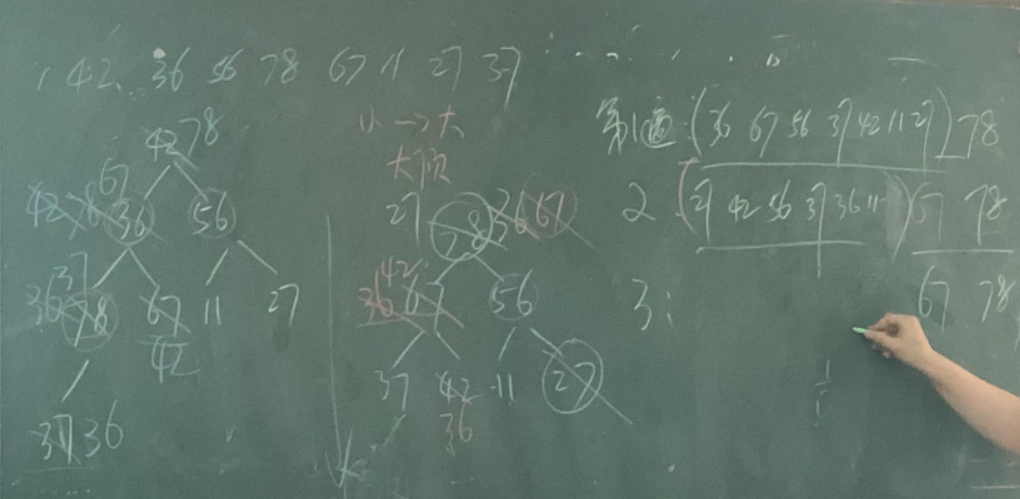 42 36 56 78 67 11 27 37
小→大
大顶
42 78
67
42 78 36 56
37
36 78 67 11 27
42
37 36
27 78 36 67
42
36 67 56
37 42 11 27
36
第1遍:(36 67 56 37 42 11 27) 78
2 (27 42 56 37 36 11) 67 78
3: 67 78